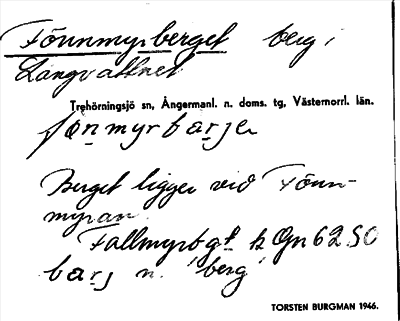 Tönnmyrberget berg i
Långvattnet
Trehörningsjö sn, Ångermanl. n. doms. tg, Västernorrl. län.
tönmyrbarje
Berget ligger vid Tönn-
myran.
Fallmyrbgt k Gn 62 SO
barj n. 'berg'
TORSTEN BURGMAN 1946.